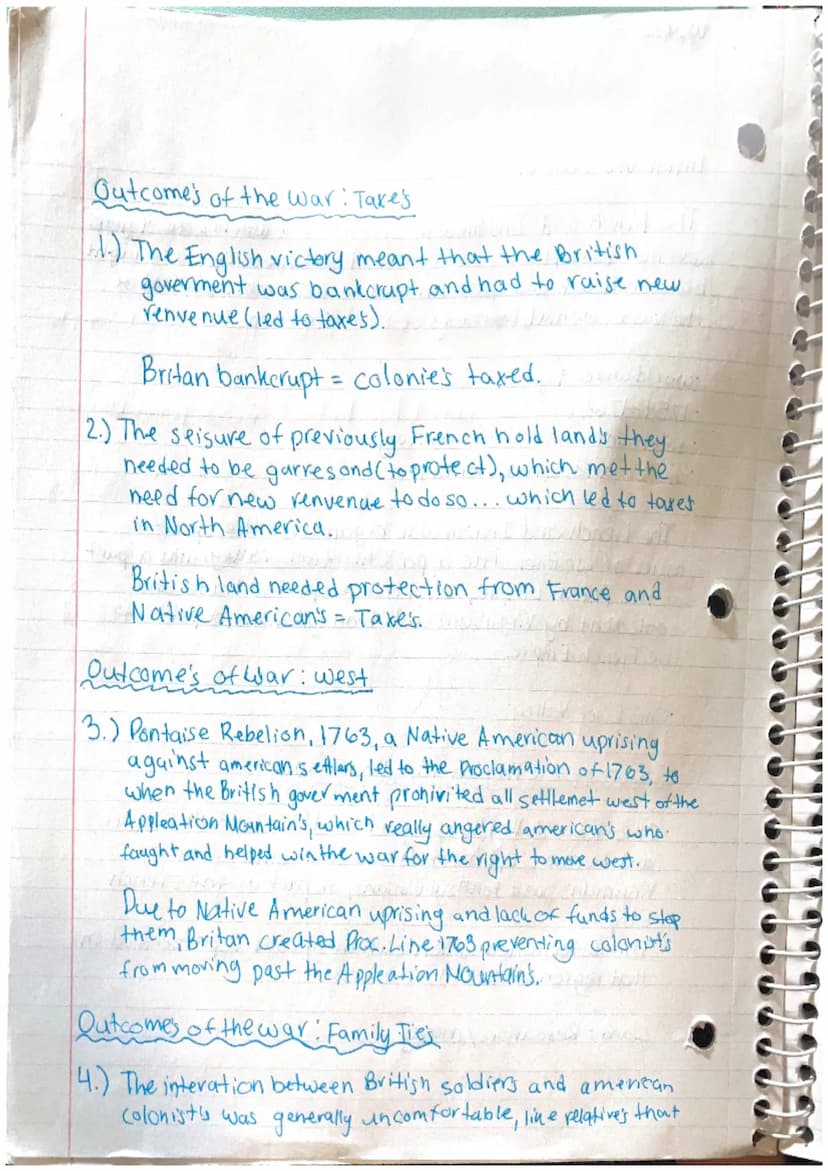 Outcome's of the war: Taxe's
1.) The English victory meant that the British
goverment was bankcrupt and had to raise new
renvenue (led to taxes).
Britan bankcrupt = colonie's taxed.
2.) The seisure of previously French hold land's they
needed to be garresond (to protect), which met the
need for new renvenue to do so... which led to taxes
in North America.
British land needed protection from France and
Native American's = Taxe's.
Outcome's of War: west
3.) Pontaise Rebelion, 1763, a Native American uprising
against american settlars, led to the Proclamation of 1763, to
when the British goverment prohivited all settlemet west of the
Appleation Mountain's, which really angered american's who
faught and helped win the war for the right to move west.
Due to Native American uprising and lack of funds to stop
them, Britan created Proc. Line 1763 preventing colonist's
from moving past the Appleation Mountain's.
Outcome's of the war: Family Tie's
4.) The interation between British soldiers and american
colonist's was generally uncomfortable, like relative's that